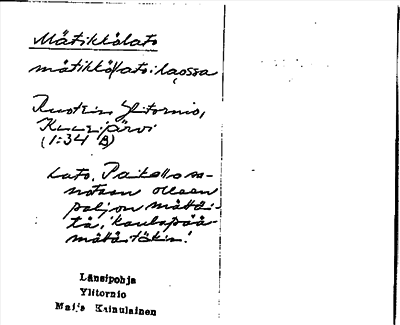 Mätikkölato
mätikkölatoilaossa
Ruotsin Ylitornio,
Kuusijärvi
(1:34 B)
Lato. Paikalla sa-
notaan olleen
paljon mättäi-
tä, "kaulapää-
mättäitäkin".
Länsipohja
Ylitornio
Maija Kainulainen